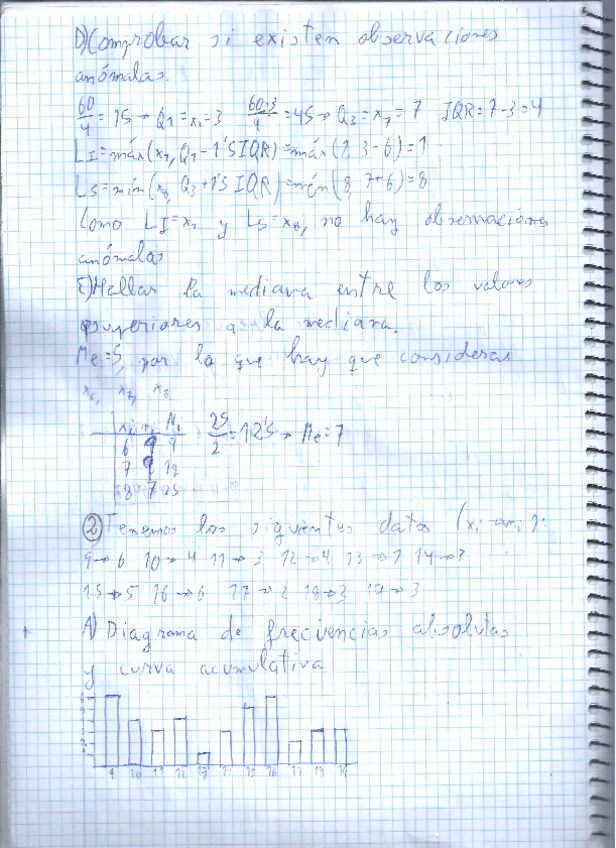 D) Comprobar si existen observaciones
anómalas.
60/4 = 15 → Q1 = x2 = 3 60·3/4 = 45 → Q3 = x7 = 7 IQR = 7-3 = 4
LI = máx(x1, Q1 - 1'5 IQR) = máx(1, 3-6) = 1
LS = mín(x8, Q3 + 1'5 IQR) = mín(8, 7+6) = 8
Como LI = x1 y LS = x8, no hay observaciones
anómalas
E) Hallar la mediana entre los valores
superiores a la mediana.
Me = 5, por lo que hay que considerar
x6, x7, x8
xi ni Ni
6 9 9 25/2 = 12'5 → Me = 7
7 9 12
8 7 25
② Tenemos los siguientes datos (xi → ni):
9→6 10→4 11→3 12→4 13→1 14→3
15→5 16→6 17→2 18→3 19→3
A) Diagrama de frecuencias absolutas
y curva acumulativa
9 10 11 12 13 14 15 16 17 18 19